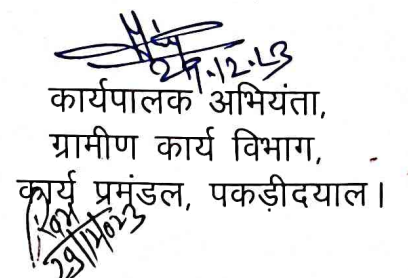 29.12.23
कार्यपालक अभियंता,
ग्रामीण कार्य विभाग,
कार्य प्रमंडल, पकड़ीदयाल।
29/12/2023